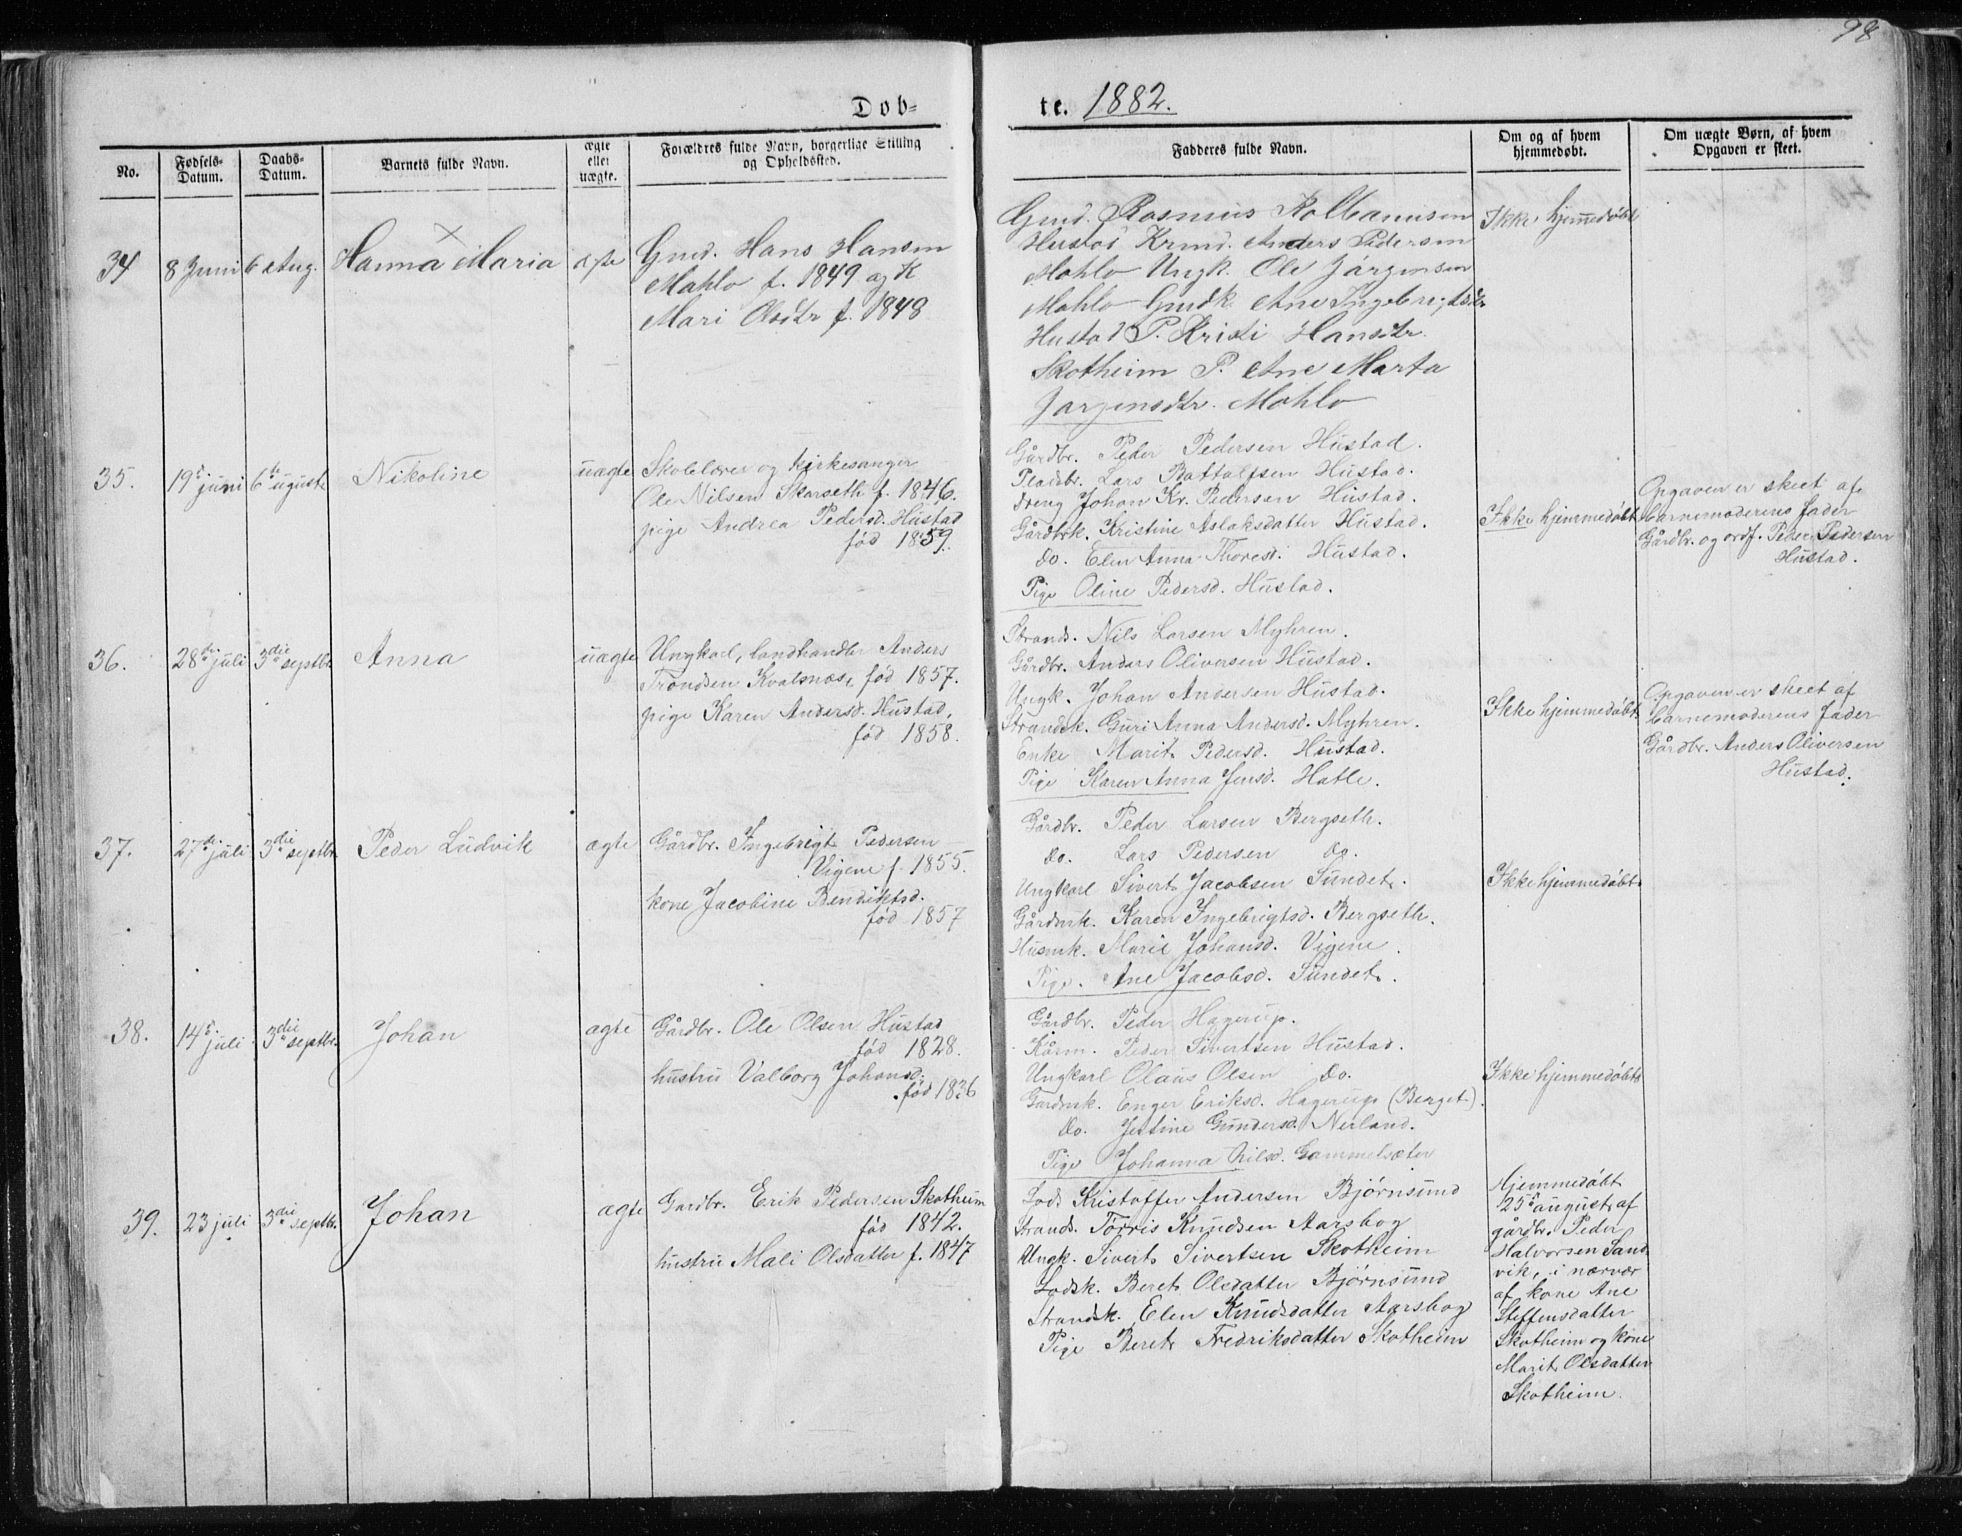 98
Døb-
te. 1882.
No.
Fødsels-
Datum.
Daabs-
Datum.
Barnets fulde Navn.
ægte
eller
uægte.
Forældres fulde Navn, borgerlige Stilling
og Opholdssted.
Faddernes fulde Navn.
Om og af hvem
hjemmedøbt.
Om uægte Børn, af hvem
Opgaven er skeet.
34
8 Juni
6 Aug.
Hanna Maria
ægte
Gmd. Hans Hansen
Mahlo f. 1849 og K
Mari Olsdtr f. 1848
Gmd. Rasmus Kolbanussen
Hustad Krmd. Anders Pedersen
Mahlo Ungk. Ole Jørgensen
Mahlo Gmdk. Ane Ingebrigtsdtr
Hustad P. Kristi Hansdtr.
Skotheim P. Ane Marta
Jørgensdtr. Mahlo
Ikke hjemmedøbt
35.
19de juni
6te ugust
Nikoline
uægte
Skolelærer og kirkesanger
Ole Nilsen Skarseth f. 1846.
pige Andrea Pedersd. Hustad
fød 1859.
Gårdbr. Peder Pedersen Hustad.
Pladsbr. Lars Battalfsen Hustad.
Dreng Johan Kr. Pedersen Hustad.
Gårdbrk. Kristine Aslaksdatter Hustad.
do. Elen Anna Thoresd. Hustad.
Pige Oline Pedersd. Hustad.
Ikke hjemmedøbt
Opgaven er skeet af
barnemoderens fader
Gårdbr. og ordf. Peder Pedersen
Hustad.
36.
28de juli
3die septbr
Anna
uægte
Ungkarl, landhandler Anders
Trondsen Kvalsnæs, fød 1857.
pige Karen Andersd. Hustad,
fød 1858.
Strands. Nils Larsen Myhren.
Gårdbr. Anders Oliversen Hustad.
Ungk. Johan Andersen Hustad.
Strandsk. Guri Anna Andersd. Myhren.
Enke Marit Pedersd. Hustad.
Pige Karen Anna Jensd. Hatle.
Ikke hjemmedøbt
Opgaven er skeet af
barnemoderens fader
Gårdbr. Anders Oliversen
Hustad.
37.
27de juli
3die septbr.
Peder Ludvik
ægte
Gårdbr. Ingebrigt Pedersen
Vigene f. 1855.
kone Jacobine Bendiktsd.
fød 1857
Gårdbr. Peder Larsen Bergseth.
do. Lars Pedersen do.
Ungkarl Sivert Jacobsen Sundet.
Gårdmk. Karen Ingebrigtsd. Bergseth.
Husmk. Marie Johansd. Vigene.
Pige. Ane Jacobsd. Sundet.
Ikke hjemmedøbt
38.
14de juli
3die septbr.
Johan
ægte
Gårdbr. Ole Olsen Hustad
fød 1828.
hustru Valborg Johansd.
fød 1836
Gårdbr. Peder Hagerup.
Kårm. Peder Sivertsen Hustad.
Ungkarl Olaus Olsen do.
Gårdmk. Enger Eriksd. Hagerup (Berget).
do. Jettine Gundersd. Neiland.
Pige Johanna Nilsd. Gammelsæter
Ikke hjemmedøbt
39.
23 juli
3die septbr.
Johan
ægte
Gårdbr. Erik Pedersen Skotheim
fød 1842.
hustru Mali Olsdatter f. 1847
Lods Kristoffer Andersen Bjørnsund
Strands. Torris Knudsen Aarsbog
Ungk. Sivert Sivertsen Skotheim
Lodsk. Beret Olsdatter Bjørnsund
Strandsk. Elen Knudsdatter Aarsbog
Pige Beret Fredriksdatter Skotheim
Hjemmedøbt
25de august af
gårdbr. Peder
Halvorsen Sand-
vik, i nærvær
af kone Ane
Steffensdatter
Skotheim og kone
Marit Olsdatter
Skotheim.